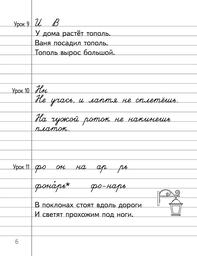 Урок 9 И В
У дома растёт тополь.
Ваня посадил тополь.
Тополь вырос большой.
Урок 10 Ни
Не учась, и лаптя не сплетёшь.
На чужой роток не накинешь
платок.
Урок 11 фо он на ар рь
фона́рь* фо-нарь
В поклонах стоят вдоль дороги
И светят прохожим под ноги.
6